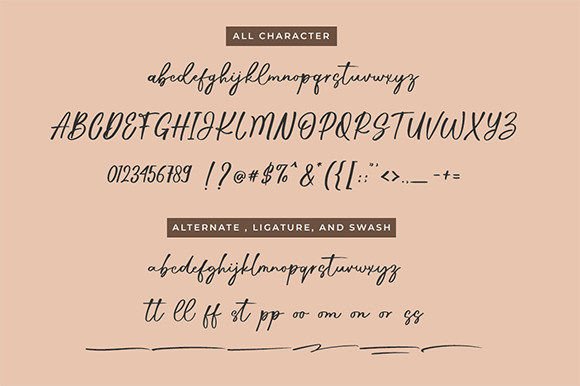 ALL CHARACTER
abcdefghijklmnopqrstuvwxyz
ABCDEFGHIJKLMNOPQRSTUVWXYZ
0123456789 !?@#$%^&*({[::"'<>.,__-+=
ALTERNATE , LIGATURE, AND SWASH
abcdefghijklmnopqrstuvwxyz
tt ll ff st pp oo om on or ss